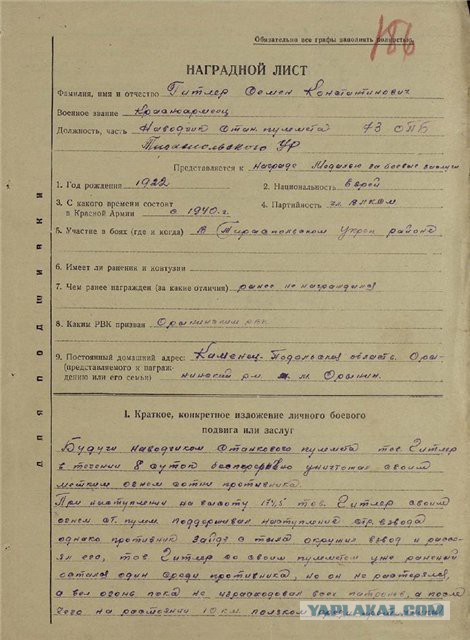 Обязательно все графы заполнять полностью.
186
НАГРАДНОЙ ЛИСТ
Фамилия, имя и отчество Гитлер Семен Константинович
Военное звание Красноармеец
Должность, часть Наводчик Стан. пулемета 73 ОПБ
Тираспольского УР
Представляется к награде Медалью за боевые заслуги
1. Год рождения 1922 2. Национальность Еврей
3. С какого времени состоит
в Красной Армии с 1940 г. 4. Партийность чл. ВЛКСМ
5. Участие в боях (где и когда) В Тираспольском Укреп районе
6. Имеет ли ранения и контузии
7. Чем ранее награжден (за какие отличия) ранее не награждался
8. Каким РВК призван Орынинский рвк
9. Постоянный домашний адрес: Каменец-Подольская область. Оры-
(представляемого к награж-
дению или его семьи) нинский р-н м. Орынин.
ДЛЯ ПОДШИВКИ
I. Краткое, конкретное изложение личного боевого
подвига или заслуг
Будучи наводчиком Станкового пулемета тов. Гитлер
в течении 8 суток беспрерывно уничтожал своим
метким огнем сотни противника.
При наступлении на высоту 174,5 тов. Гитлер своим
огнем ст. пулем. поддерживал наступление стр. взвода
однако противник зайдя с тыла окружил взвод и рассе-
ял его, тов Гитлер со своим пулеметом уже раненый
остался один среди противника, но он не растерялся,
а вел огонь пока не израсходовал всех патронов, а после
чего на расстоянии 10 км. ползком
YAPLAKAL.COM
YAPLAKAL.COM